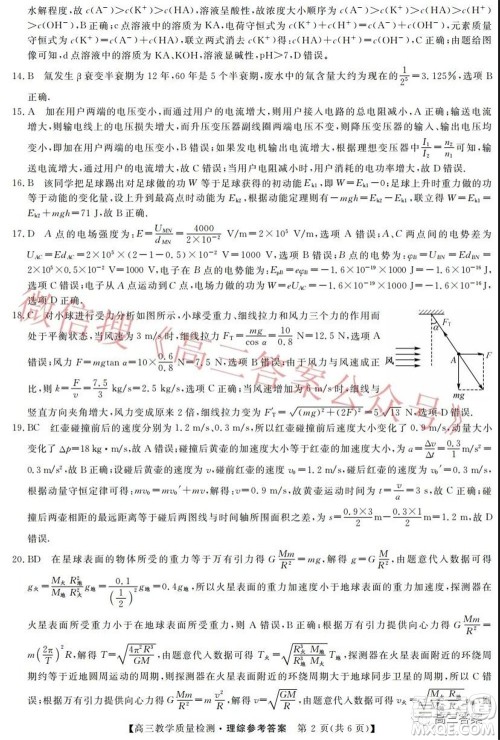 水解程度,故 c(A⁻)>c(K⁺)>c(HA),溶液呈酸性,故浓度大小顺序为 c(A⁻)>c(K⁺)>c(HA)>c(H⁺)>
c(OH⁻),B 正确;c 点溶液中的溶质为 KA,电荷守恒式为 c(K⁺)+c(H⁺)=c(A⁻)+c(OH⁻),元素质量
守恒式为 c(K⁺)=c(A⁻)+c(HA),联立两式消去 c(K⁺)得:c(HA)+c(H⁺)=c(OH⁻),C 正确;由题给图
像可知,d 点溶液中的溶质为 KA、KOH,溶液显碱性,pH>7,D 错误。
14. B 氚发生 β 衰变半衰期为 12 年,60 年是 5 个半衰期,废水中的氚含量大约为现在的 1/2⁵=3.125%,选项 B
正确.
15. A 加在用户两端的电压变小,而通过用户的电流增大,则用户接入电路的总电阻减小,A 正确;输送的电流增
大,则输电线上的电压损失增大,而升压变压器副线圈两端电压不变,则降压变压器的输入、输出电压均
变小,即加在用户两端的电压变小,故 B 错误;如果发电机输出电流增大,根据理想变压器中 I₁/I₂=n₂/n₁ 可知,输
送电流增大,故选项 C 错误;当用户电阻减小时,用户消耗的电功率增大,故 D 错误.
16. B 该同学把足球踢出对足球做的功 W 等于足球获得的初动能 Eₖ₁,即 W=Eₖ₁-0;足球上升时重力做的功
等于动能的变化量,设上升到最高点时动能为 Eₖ₂,则-mgh=Eₖ₂-Eₖ₁,联立解得,该同学对足球做的功 W=
Eₖ₂+mgh=71 J,故 B 正确.
17. D A 点的电场强度为:E=U_MN/d_MN=4000/(2×10⁻²) V/m=2×10⁵ V/m,选项 A 错误;A、C 两点间的电势差为
U_AC=Ed_AC=2×10⁵×(2-1-0.5)×10⁻² V=1000 V,选项 B 错误;B 点的电势为:φ_B=U_BN=Ed_BN=
2×10⁵×0.5×10⁻² V=1000 V,电子在 B 点的电势能为:E_pB=eφ_B=-1.6×10⁻¹⁹×1000 J=-1.6×10⁻¹⁶ J,
选项 C 错误;电子从 A 点运动到 C 点,电场力做的功为 W=eU_AC=-1.6×10⁻¹⁹×1000 J=-1.6×10⁻¹⁶ J,
选项 D 正确.
18. C 对小球进行受力分析如图所示,小球受重力、细线拉力和风力三个力的作用而
处于平衡状态,当风速为 3 m/s 时,细线拉力 F_T=mg/cos α=10/0.8 N=12.5 N,选项 A
错误;风力 F=mgtan α=10×0.6/0.8 N=7.5 N,选项 B 错误;由于风力与风速成正
比,则 k=F/v=7.5/3 kg/s=2.5 kg/s,选项 C 正确;当风速增加为 6 m/s 时,细线与
竖直方向夹角增大,风力变成原来 2 倍,细线拉力变为 F_T=√((mg)²+(2F)²)=5√13 N,选项 D 错误.
F_T
α
A
F
mg
19. BC 红壶碰撞前后的速度分别为 1.2 m/s、0.3 m/s,所以碰撞前后红壶速度大小变化了 0.9 m/s,动量大小变
化了 Δp=18 kg·m/s,故 A 错误;碰撞后黄壶的加速度大小等于红壶的加速度大小,为 a=Δv/Δt=0.3/1 m/s²=
0.3 m/s²,故 B 正确;设碰后黄壶的速度为 v,碰前红壶的速度为 v₀=1.2 m/s,碰后红壶的速度为 v₀′=0.3 m/s,
根据动量守恒定律可得:mv₀=mv₀′+mv,解得:v=0.9 m/s,故黄壶运动时间为 t=v/a=3 s,故 C 正确;碰
撞后两壶相距的最远距离等于碰后两图线与时间轴所围面积之差,为 s=0.9×3/2 m-0.3×1/2 m=1.2 m,故 D
错误.
20. BD 在星球表面的物体所受的重力等于万有引力得 G Mm/R²=mg,解得 g=GM/R²,由题意代入数据可得
g火=M火R²地/M地R²火 g地=0.1/(1/2)² g地=0.4g地,所以火星表面的重力加速度小于地球表面的重力加速度,探测器在
火星表面所受重力小于在地球表面所受重力,则 A 错误,B 正确;根据万有引力提供向心力得 G Mm/R²=
m(2π/T)²R,解得 T=√(4π²R³/GM),由题意代入数据可得 T火=√(R³火M地/R³地M火) T地,所以探测器在火星表面附近的环绕
周期约等于近地圆周运动的周期,则探测器在火星表面附近的环绕周期小于地球同步卫星的周期,所以 C 错
误;根据万有引力提供向心力得 G Mm/R²=m v²/R,解得 v=√(GM/R),由题意代入数据可得 v火=√(M火R地/M地R火) v地
高三教学质量检测·理综参考答案 第 2 页(共 6 页)
微信搜《高三答案公众号》
高三答案